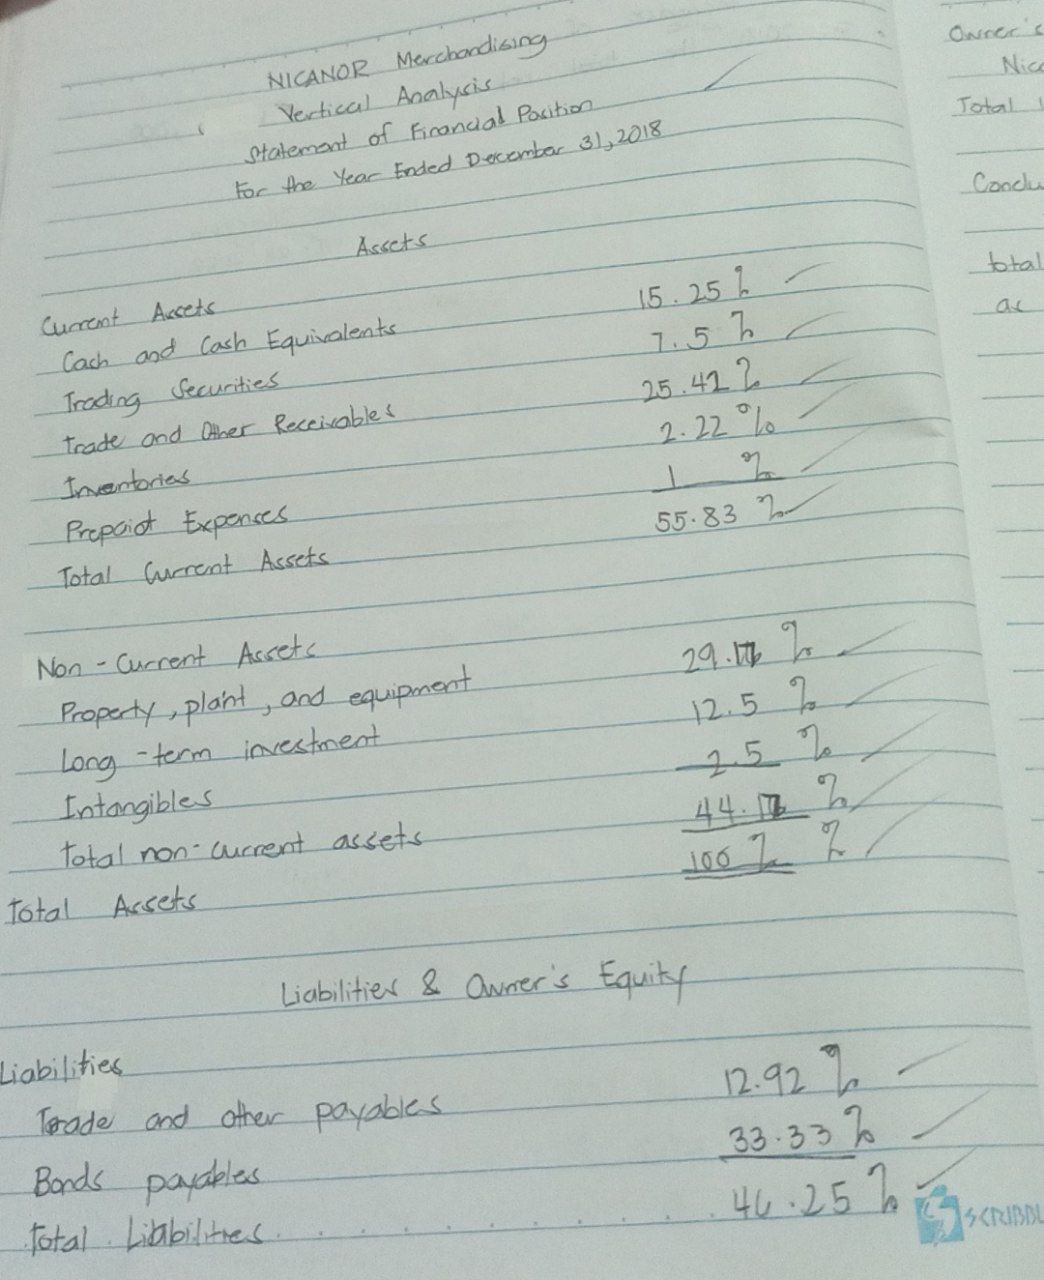 NICANOR Merchandising
Vertical Analysis
Statement of Financial Position
For the Year Ended December 31, 2018
Assets
Current Assets
Cash and Cash Equivalents 15.25%
Trading Securities 7.5%
Trade and Other Receivables 25.42%
Inventories 2.22%
Prepaid Expenses 1 %
Total Current Assets 55.83%
Non-Current Assets
Property, plant, and equipment 29. %
Long-term investment 12.5 %
Intangibles 2.5 %
Total non-current assets 44. %
Total Assets 100% %
Liabilities & Owner's Equity
Liabilities
Trade and other payables 12.92%
Bonds payables 33.33%
Total Liabilities 46.25%
Owner's
Total
total
as